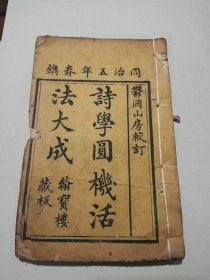 同治五年春鐫
鬱岡山房較訂
詩學圓機活
法大成
翰寶樓
藏板